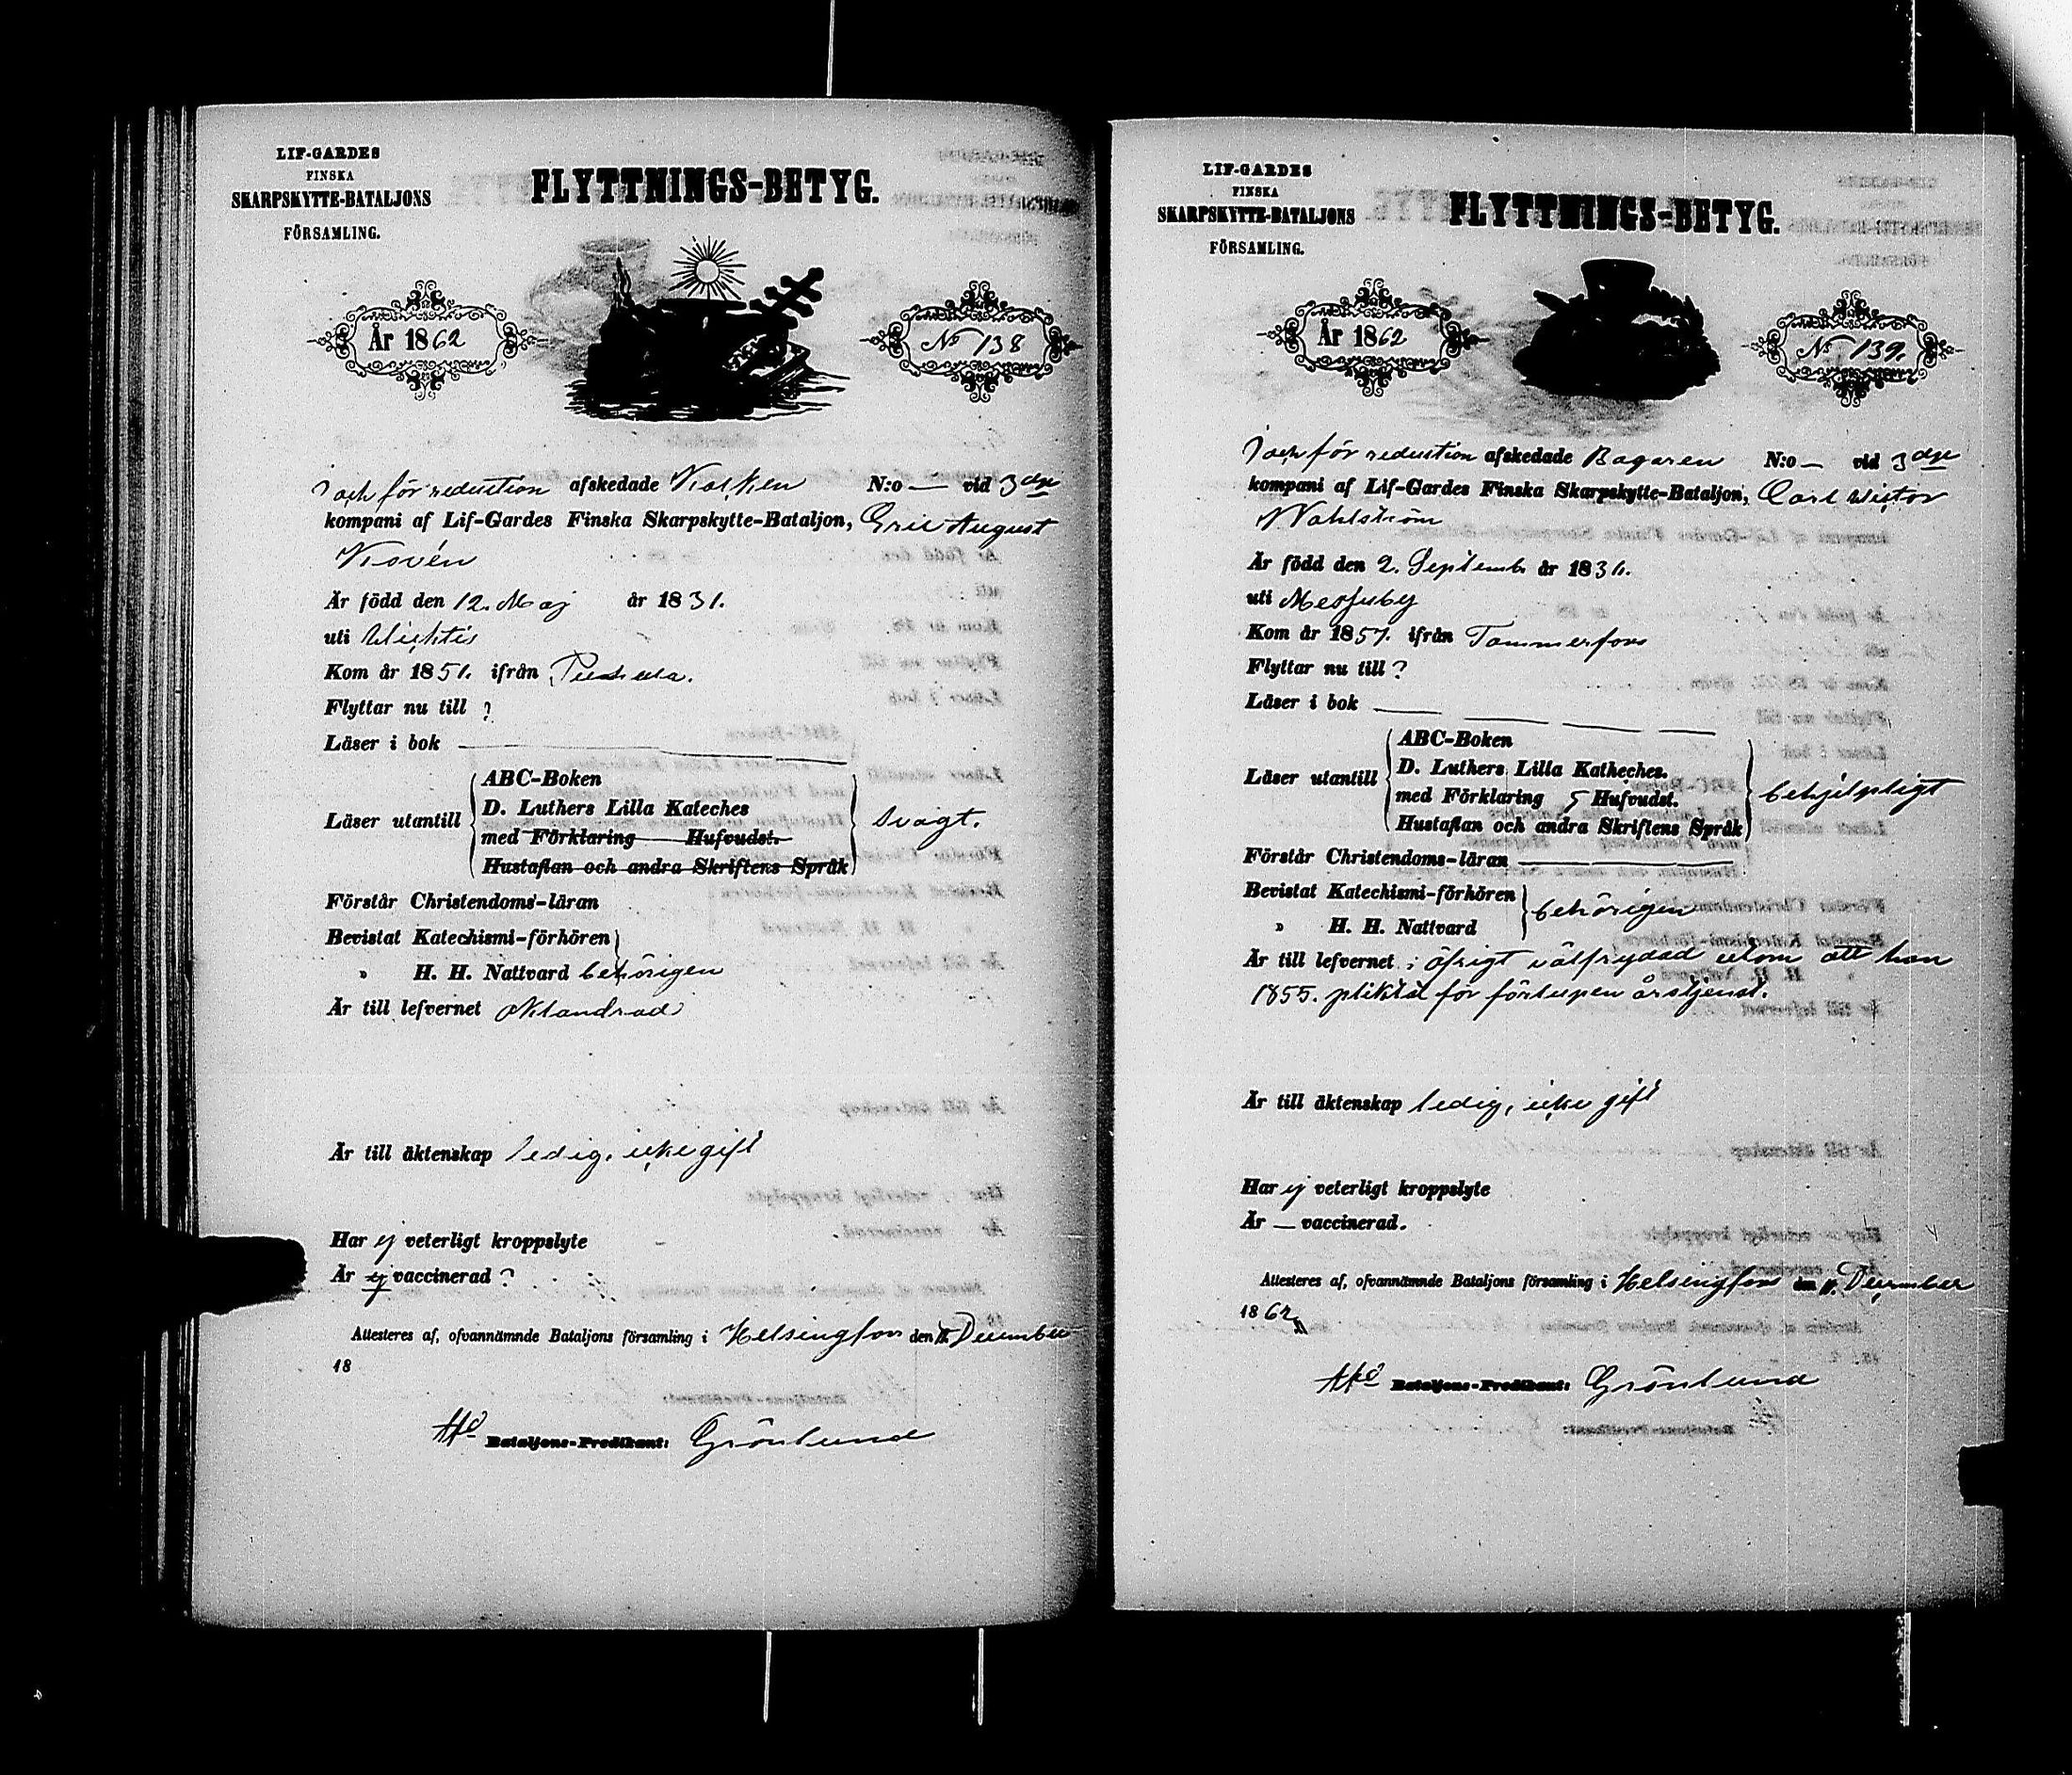 LIF-GARDES
FINSKA
SKARPSKYTTE-BATALJONS
FÖRSAMLING.
FLYTTNINGS-BETYG.
År 1862
No 138
I och för reduction afskedade Kocken N:o — vid 3dje
kompani af Lif-Gardes Finska Skarpskytte-Bataljon, Eric August
Kovén
Är född den 12. Maj år 1831.
uti Wichtis
Kom år 1851. ifrån Pusula.
Flyttar nu till ?
Läser i bok
Läser utantill
ABC-Boken
D. Luthers Lilla Kateches
med Förklaring Hufvudst.
Hustaflan och andra Skriftens Språk
svagt.
Förstår Christendoms-läran
Bevistat Katechismi-förhören
» H. H. Nattvard behörigen
Är till lefvernet oklandrad
Är till äktenskap ledig, icke gift
Har ej veterligt kroppslyte
Är ej vaccinerad ?
Attesteres af, ofvannämnde Bataljons församling i Helsingfors den 11. December
18
Bataljons-Predikant: Grönlund
LIF-GARDES
FINSKA
SKARPSKYTTE-BATALJONS
FÖRSAMLING.
FLYTTNINGS-BETYG.
År 1862
No 139.
I och för reduction afskedade Bagaren N:o — vid 3dje
kompani af Lif-Gardes Finska Skarpskytte-Bataljon, Carl Victor
Wahlström
Är född den 2. Septemb. år 1836.
uti Messuby
Kom år 1857. ifrån Tammerfors
Flyttar nu till ?
Läser i bok
Läser utantill
ABC-Boken
D. Luthers Lilla Katheches.
med Förklaring 5 Hufvudst.
Hustaflan och andra Skriftens Språk
behjelpligt
Förstår Christendoms-läran
Bevistat Katechismi-förhören
» H. H. Nattvard
behörigen
Är till lefvernet i öfrigt välfrejdad utom att han
1855. pliktat för förlupen årstjenst.
Är till äktenskap ledig, icke gift
Har ej veterligt kroppslyte
Är — vaccinerad.
Attesteres af, ofvannämnde Bataljons församling i Helsingfors den 11. December
1862
Bataljons-Predikant: Grönlund